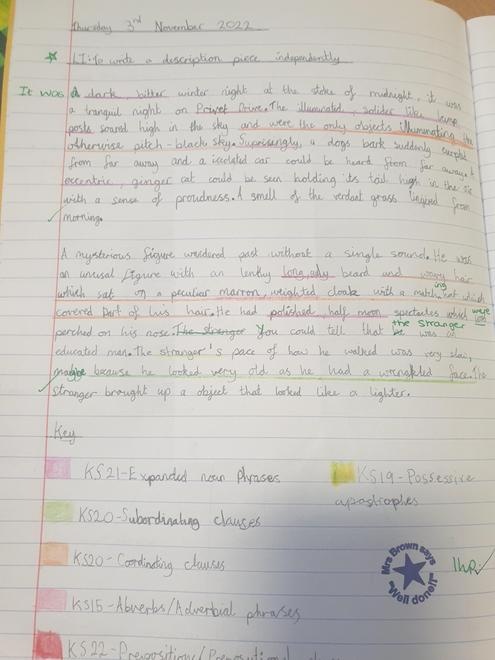 Thursday 3rd November 2022
LI: to write a description piece independently
It was a dark, bitter winter night at the stoke of midnight, it was
a tranquil night on Privet Drive. The illuminated, solider like lamp
posts soared high in the sky and were the only objects illuminating the
otherwise pitch-black sky. Suprisingly, a dogs bark suddenly
from far away and a icolated car could be heard from far away. A
eccentric, ginger cat could be seen holding its tail high in the
with a sense of proudness. A smell of the verdant grass lingered from
morning.
A mysterious figure wandered past without a single sound. He was
an unusal figure with an lenthy long, beard and wavy hair
which sat on a peculiar maroon, weighted cloak with a matching hat which
covered part of his hair. He had polished, half moon spectacles which were
perched on his nose. The stranger You could tell that the stranger was an
educated man. The stranger's pace of how he walked was very slow,
maybe because he looked very old as he had a wrinkled face. The
stranger brought up a object that looked like a lighter.
Key
KS21-Expanded noun phrases
KS19-Possessive
apostrophes
KS20-Subordinating clauses
KS20-Coordinating clauses
KS15-Abverbs/Adverbial phrases
KS22-Prepositions/
Mrs Brown says
"Well done!"
1HP